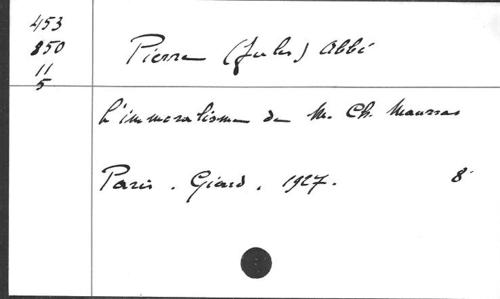 453
850
11
5
Pierre (Jules) Abbé
L'immoralisme de M. Ch. Maurras
Paris. Giard. 1927. 8°